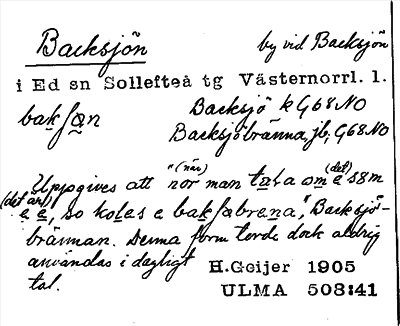 Backsjön by vid Backsjön
i Ed sn Sollefteå tg Västernorrl. l.
bakʃøn Backsjö k G68 NO
Backsjöbränna, jb, G68 NO
Uppgives att "(när) nör man tala om (det) e søm
(det är) e e, so koles e bakʃøbrena", Backsjö-
brännan. Denna form torde dock aldrig
användas i dagligt H.Geijer 1905
tal. ULMA 508:41